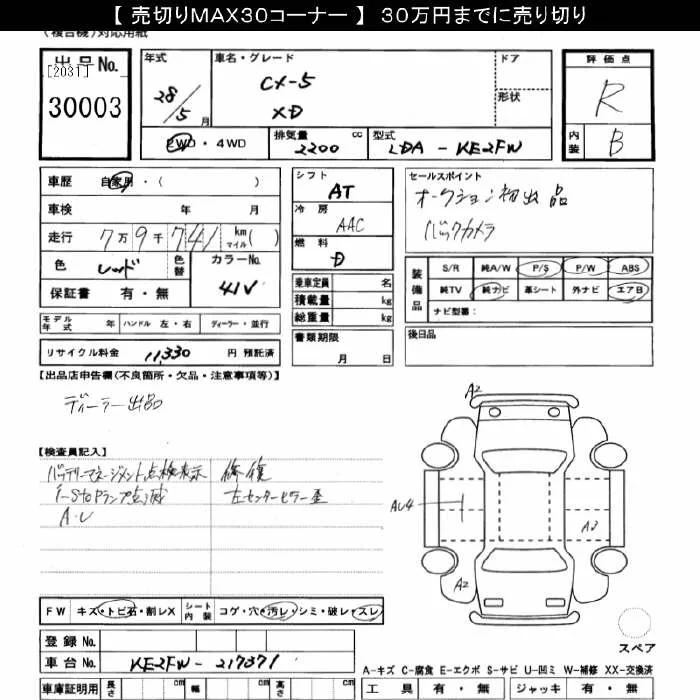 【 売切りMAX30コーナー 】 30万円までに売り切り
(複合機)対応用紙
出品No.
[2031]
30003
年式
28/5 月
車名・グレード
CX-5
XD
ドア
形状
評価点
R
内装
B
2WD・4WD
排気量
2200 cc
型式
LDA-KE2FW
車歴 自家用・( )
車検 年 月
走行 7万9千741 km マイル( )
色 レッド
色替
カラーNo.
41V
保証書 有・無
シフト
AT
冷房
AAC
燃料
D
乗車定員 名
積載量 kg
総重量 kg
セールスポイント
オークション初出品
バックカメラ
装備品
S/R 純A/W P/S P/W ABS
純TV 純ナビ 革シート 外ナビ エアB
ナビ型番:
モデル年式 年 ハンドル 左・右 ディーラー・並行
書類期限
月 日
後日品
リサイクル料金 11,330 円 預託済
【出品店申告欄(不良箇所・欠品・注意事項等)】
ディーラー出品
【検査員記入】
バッテリーマネージメント点検表示
i-stopランプ点滅
A・U
修復
左センターピラー歪
A2
AU4
A2
A2
スペア
FW キズ・トビ石・割レX
シート内装 コゲ・穴・汚レ・シミ・破レ・スレ
登録No.
車台No. KE2FW-217371
A-キズ C-腐食 E-エクボ S-サビ U-凹ミ W-補修 XX-交換済
車庫証明用 長さ cm 幅 cm 高さ cm
工具 有・無 ジャッキ 有・無